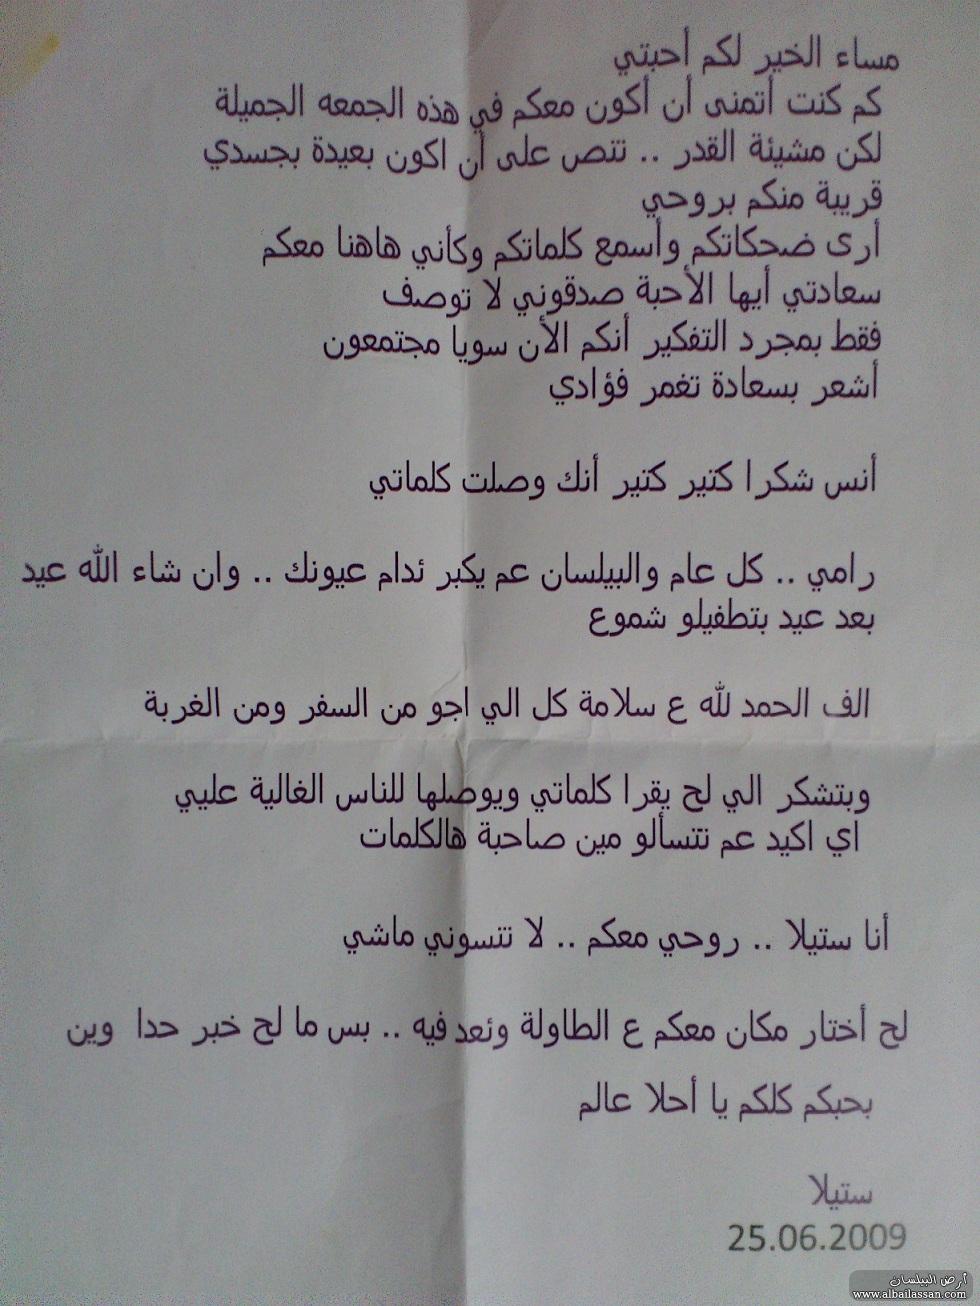 مساء الخير لكم أحبتي
كم كنت أتمنى أن أكون معكم في هذه الجمعه الجميلة
لكن مشيئة القدر .. تنص على أن اكون بعيدة بجسدي
قريبة منكم بروحي
أرى ضحكاتكم وأسمع كلماتكم وكأني هاهنا معكم
سعادتي أيها الأحبة صدقوني لا توصف
فقط بمجرد التفكير أنكم الأن سويا مجتمعون
أشعر بسعادة تغمر فؤادي
أنس شكرا كتير كتير أنك وصلت كلماتي
رامي .. كل عام والبيلسان عم يكبر ئدام عيونك .. وان شاء الله عيد
بعد عيد بتطفيلو شموع
الف الحمد لله ع سلامة كل الي اجو من السفر ومن الغربة
وبتشكر الي لح يقرا كلماتي ويوصلها للناس الغالية عليي
اي اكيد عم تتسألو مين صاحبة هالكلمات
أنا ستيلا .. روحي معكم .. لا تنسوني ماشي
لح أختار مكان معكم ع الطاولة وئعد فيه .. بس ما لح خبر حدا وين
بحبكم كلكم يا أحلا عالم
ستيلا
25.06.2009
أرض البيلسان
www.albailassan.com